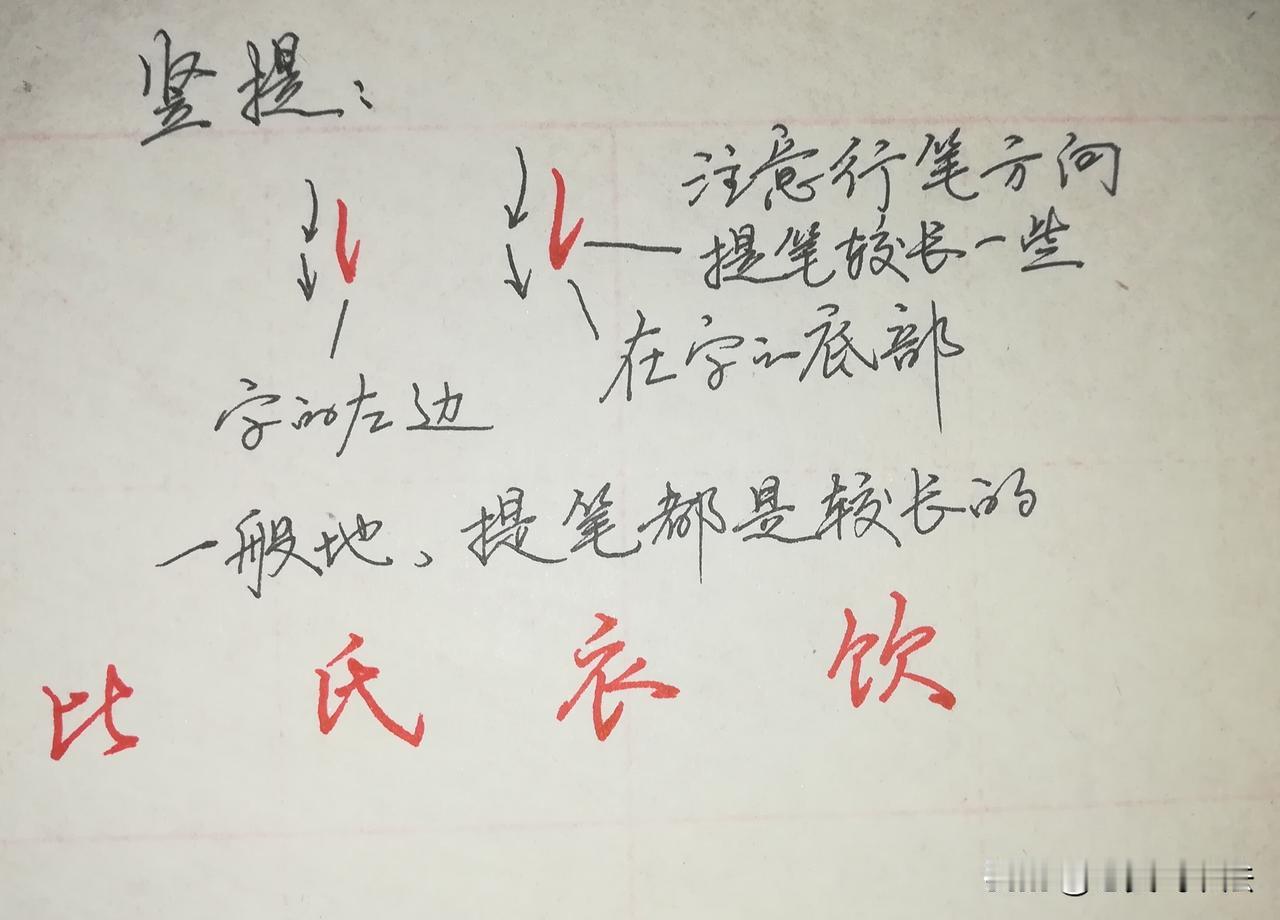 竖提：
注意行笔方向
提笔较长一些
在字之底部
字的左边
一般地、提笔都是较长的
比 氏 衣 饮